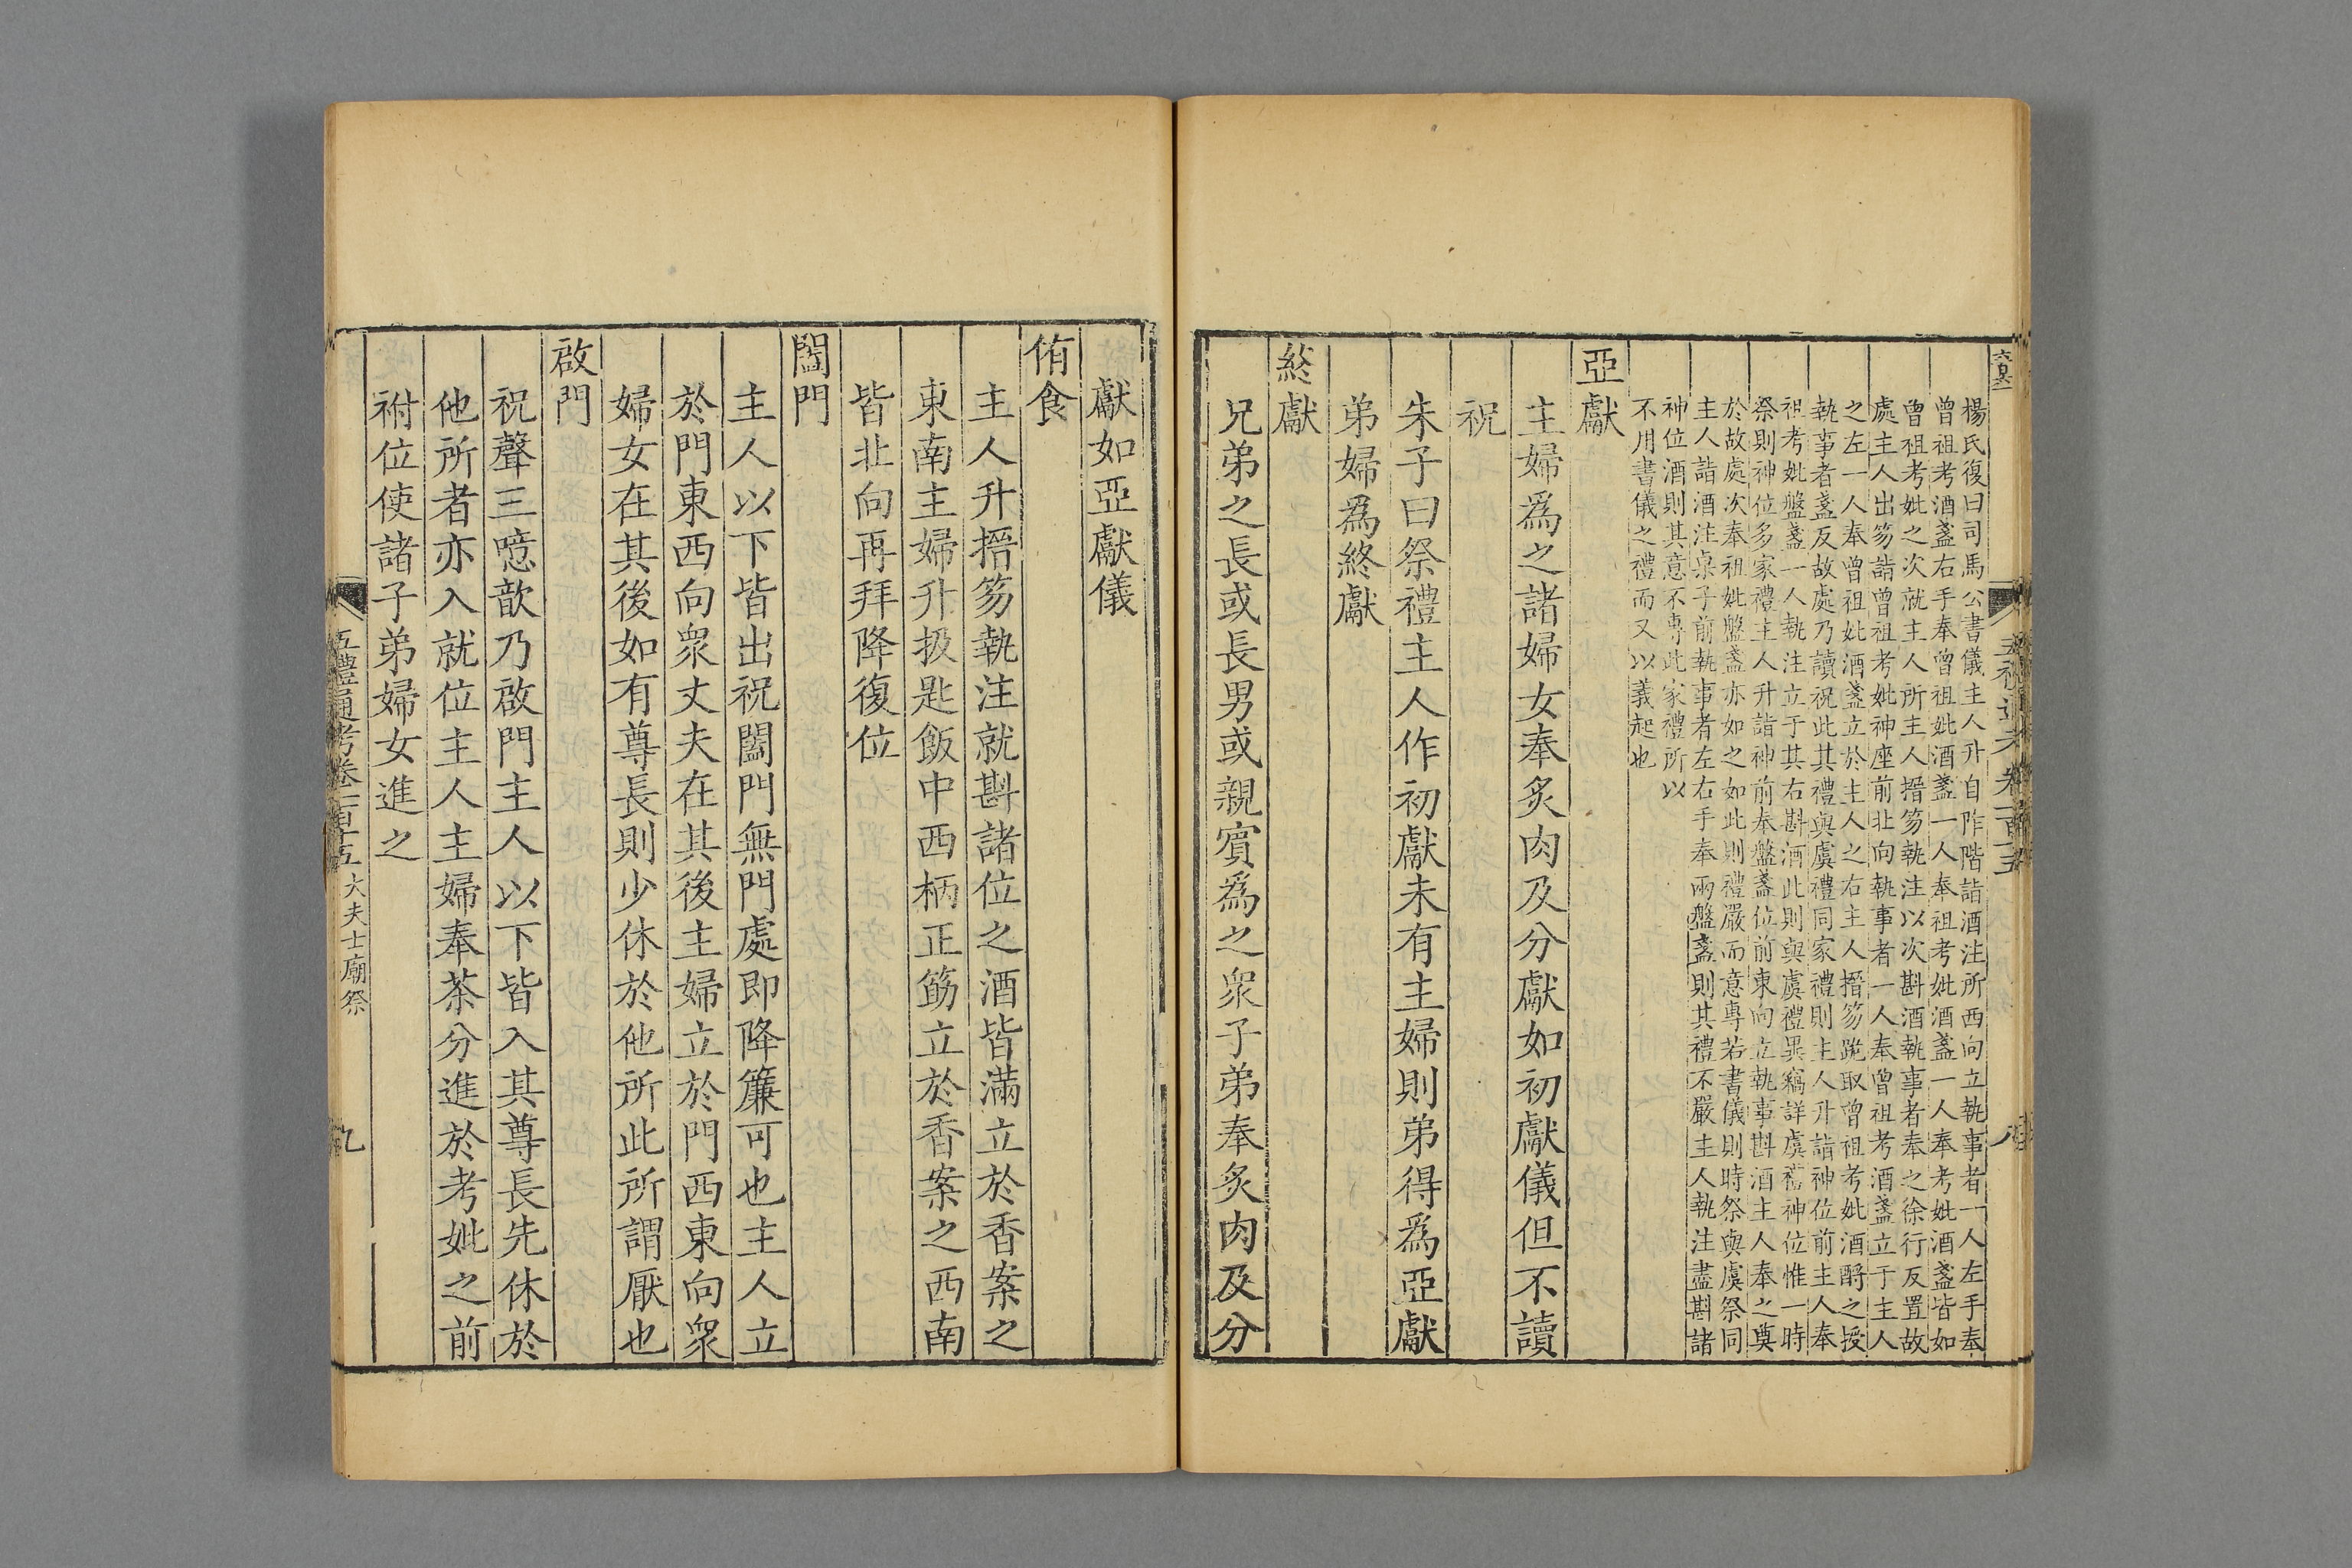 楊氏復曰司馬公書儀主人升自阼階詣酒注所西向立執事者一人左手奉
曾祖考酒盞右手奉曾祖妣酒盞一人奉祖考妣酒盞一人奉考妣酒盞皆如
曾祖考妣之次就主人所主人搢笏執注以次斟酒執事者奉之徐行反置故
處主人出笏詣曾祖考妣神座前北向執事者一人奉曾祖考酒盞立于主人
之左一人奉曾祖妣酒盞立於主人之右主人搢笏跪取曾祖考妣酒酹之授
執事者盞反故處乃讀祝此其禮與虞禮同家禮則主人升詣神位前主人奉
祖考妣盤盞一人執注立于其右斟酒此則與虞禮異竊詳虞禮神位惟一時
祭則神位多家禮主人升詣神前奉盤盞位前東向立執事斟酒主人奉之奠
於故處次奉祖妣盤盞亦如之如此則禮嚴而意專若書儀則時祭與虞祭同
主人詣酒注桌子前執事者左右手奉兩盤盞則其禮不嚴主人執注盡斟諸
神位酒則其意不專此家禮所以
不用書儀之禮而又以義起也
亞獻
主婦爲之諸婦女奉炙肉及分獻如初獻儀但不讀
祝
朱子曰祭禮主人作初獻未有主婦則弟得爲亞獻
弟婦爲終獻
終獻
兄弟之長或長男或親賓爲之衆子弟奉炙肉及分
獻如亞獻儀
侑食
主人升搢笏執注就斟諸位之酒皆滿立於香案之
東南主婦升扱匙飯中西柄正筯立於香案之西南
皆北向再拜降復位
闔門
主人以下皆出祝闔門無門處即降簾可也主人立
於門東西向衆丈夫在其後主婦立於門西東向衆
婦女在其後如有尊長則少休於他所此所謂厭也
啟門
祝聲三噫歆乃啟門主人以下皆入其尊長先休於
他所者亦入就位主人主婦奉茶分進於考妣之前
祔位使諸子弟婦女進之
五禮通考卷一百十五 大夫士廟祭 九